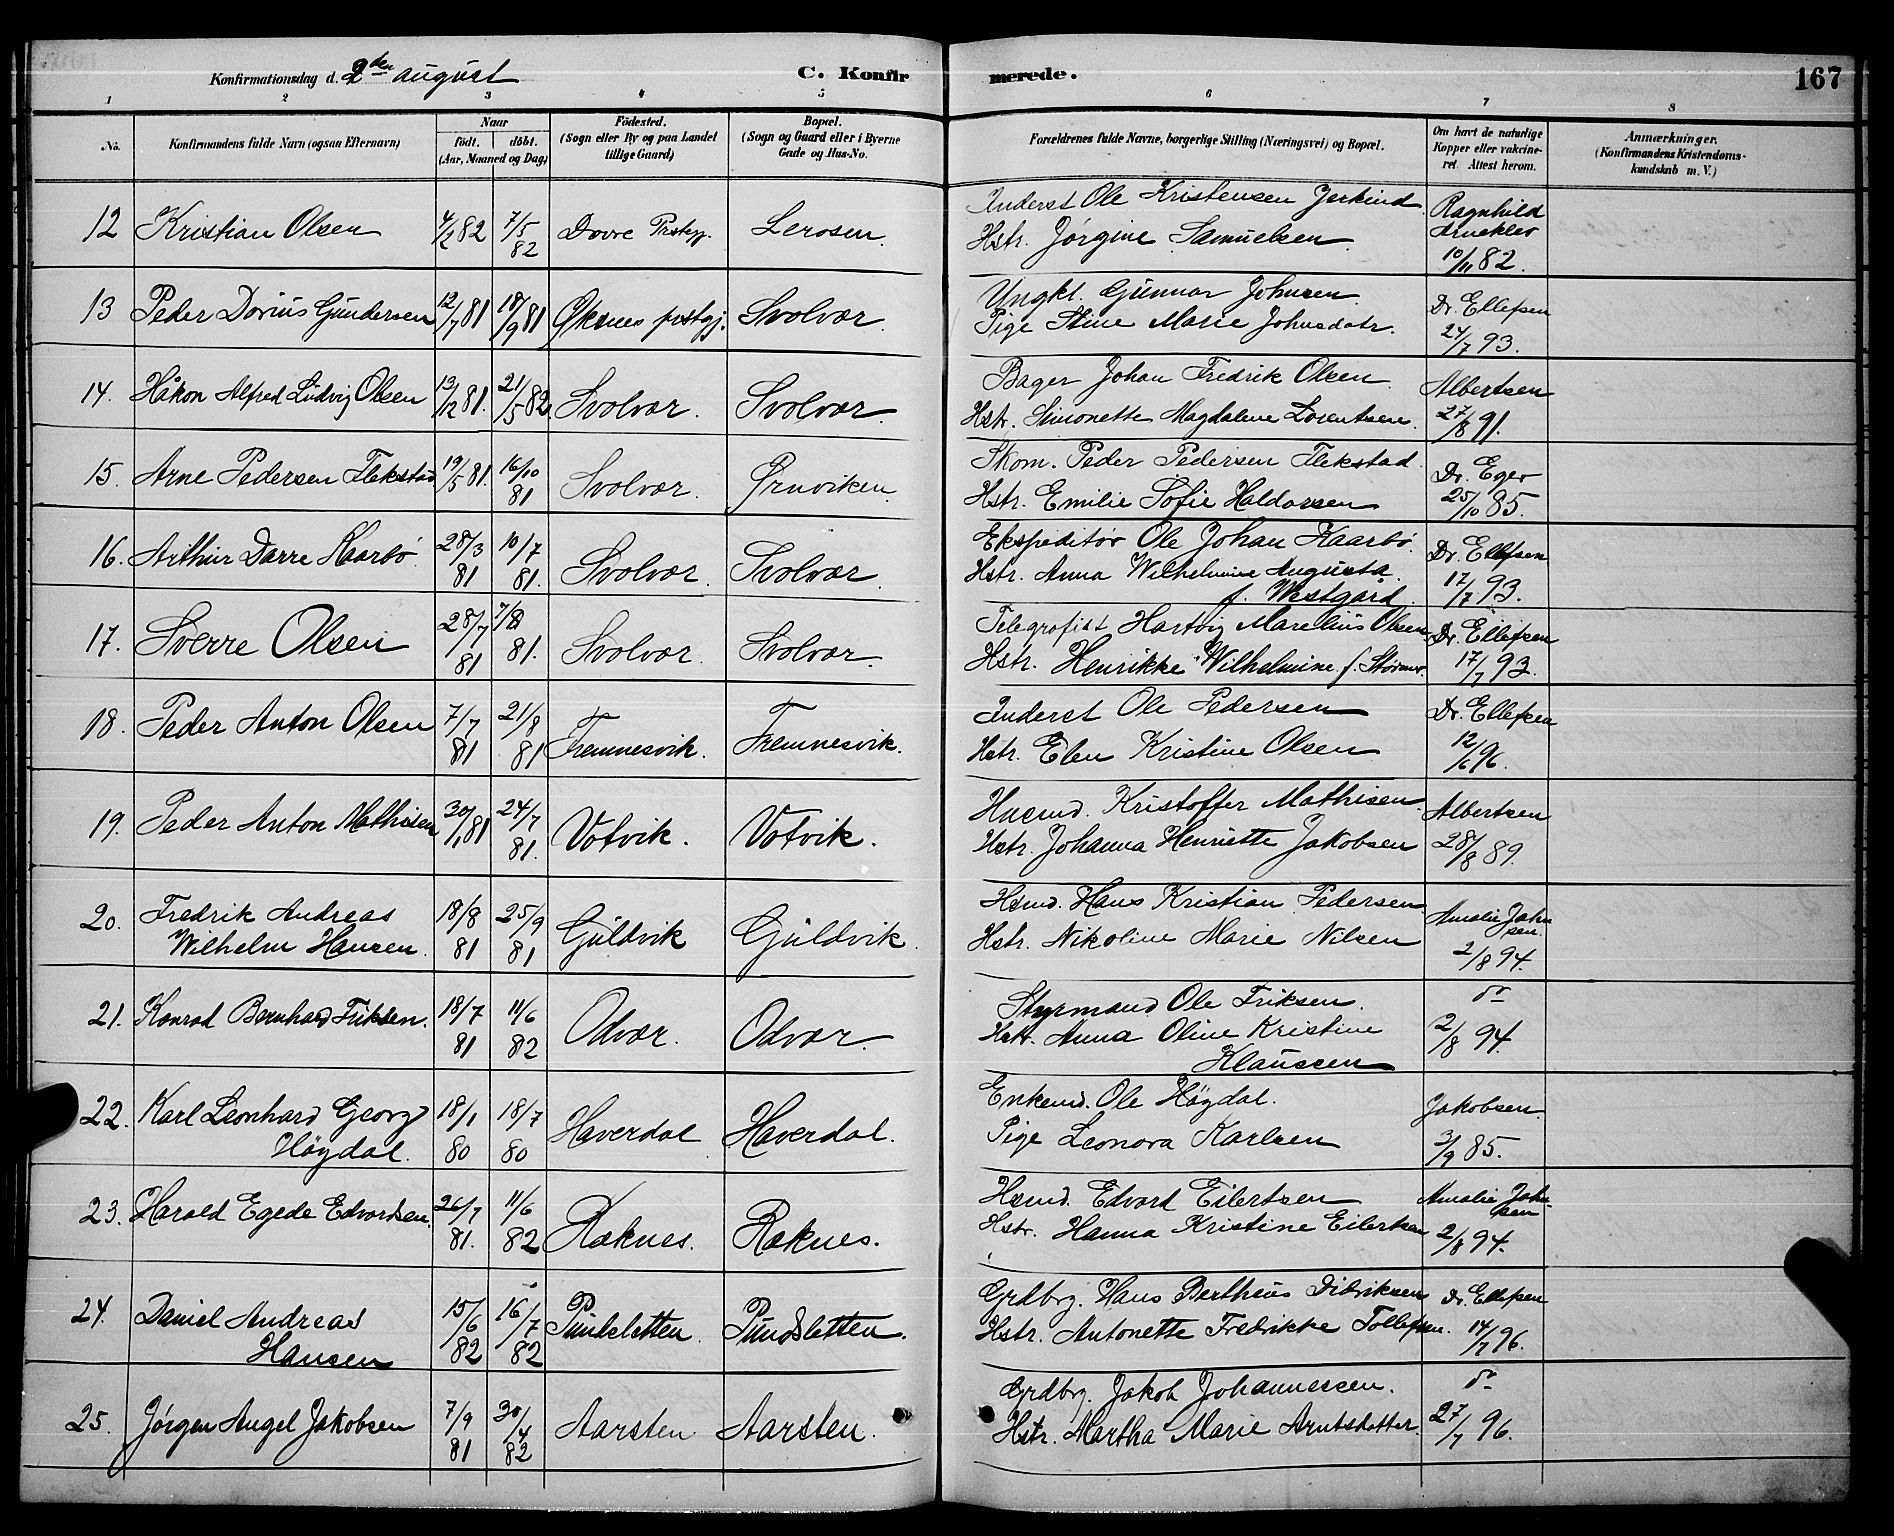 Konfirmationsdag d. 2den august
C. Konfirmerede.
167
1 2 3 4 5 6 7 8
No.
Konfirmandens fulde Navn (ogsaa Efternavn)
Naar
födt. döbt.
(Aar, Maaned og Dag)
Födested.
(Sogn eller By og paa Landet
tillige Gaard)
Bopæl.
(Sogn og Gaard eller i Byerne
Gade og Hus-No.
Forældrenes fulde Navne, borgerlige Stilling (Næringsvei) og Bopæl.
Om havt de naturlige
Kopper eller vakcine-
ret. Attest herom.
Anmærkninger.
(Konfirmandens Kristendoms-
kundskab m. V.)
12 Kristian Olsen 4/2 82 7/5 82 Dovre Prstgj. Lerosen.
Inderst Ole Kristensen Jerkind
Hstr. Jørgine Samuelsen.
Ragnhild
Arneklev
10/11 82.
13 Peder Dorius Gundersen 12/7 81 18/9 81 Øksnes prstgj. Svolvær.
Ungkl. Gunnar Johnsen.
Pige Stine Marie Johnsdatr.
Dr. Ellefsen
24/7 93.
14. Håkon Alfred Ludvig Olsen 13/12 81. 21/5 82 Svolvær. Svolvær.
Bager Johan Fredrik Olsen.
Hstr. Simonette Magdalene Lorentsen.
Albertsen
27/8 91.
15. Arne Pedersen Flekstad 19/5 81. 16/10 81 Svolvær. Ørnviken.
Skom. Peder Pedersen Flekstad
Hstr. Emilie Sofie Haldorsen
Dr. Eger
25/10 85.
16. Arthur Darre Kaarbø 28/3 81 10/7 81. Svolvær. Svolvær.
Ekspeditør Ole Johan Kaarbø.
Hstr. Anna Wilhelmine Augusta
f. Westgård.
Dr. Ellefsen
17/7 93.
17. Sverre Olsen 28/7 81 7/8 81. Svolvær. Svolvær.
Telegrafist Hartvig Marelius Olsen
Hstr. Henrikke Wilhelmine f. Størmer.
Dr. Ellefsen
17/7 93.
18. Peder Anton Olsen 7/7 81 21/8 81 Fremnesvik. Fremnesvik.
Inderst Ole Pedersen
Hstr. Elen Kristine Olsen
Dr. Ellefsen
12/6 96.
19. Peder Anton Mathisen 30/1 81 24/7 81. Votvik. Votvik.
Husmd. Kristoffer Mathisen.
Hstr. Johanna Henriette Jakobsen
Albertsen
28/8 89.
20. Fredrik Andreas
Wilhelm Hansen. 18/8 81 25/9 81 Guldvik Guldvik.
Hsmd. Hans Kristian Pedersen
Hstr. Nikoline Marie Nilsen
Amalie John
sen.
2/8 94.
21. Konrad Bernhard Friksen. 18/7 81 11/6 82 Odvær. Odvær.
Styrmand Ole Friksen.
Hstr. Anna Oline Kristine
Klaussen
do
2/8 94.
22. Karl Leonhard Georg
Høgdal. 18/1 80 18/7 80 Haverdal Haverdal.
Enkemd. Ole Høgdal.
Pige Leonora Karlsen
Jakobsen.
3/9 85.
23. Harald Egede Edvardsen. 26/7 81. 11/6 82 Ræknes. Ræknes.
Hsmd. Edvard Eilertsen
Hstr. Hanna Kristine Eilertsen
Amalie John-
sen
2/8 94.
24. Daniel Andreas
Hansen 15/6 82 16/7 82 Pundsletten. Pundsletten.
Grdbrg. Hans Bertheus Didriksen
Hstr. Antonette Fredrikke Tollefsen.
Dr. Ellefsen
14/7 96.
25. Jørgen Angel Jakobsen 7/9 81 30/4 82 Aarsten Aarsten.
Grdbrg. Jakob Johannessen.
Hstr. Martha Marie Arntsdatter.
do
27/7 96.